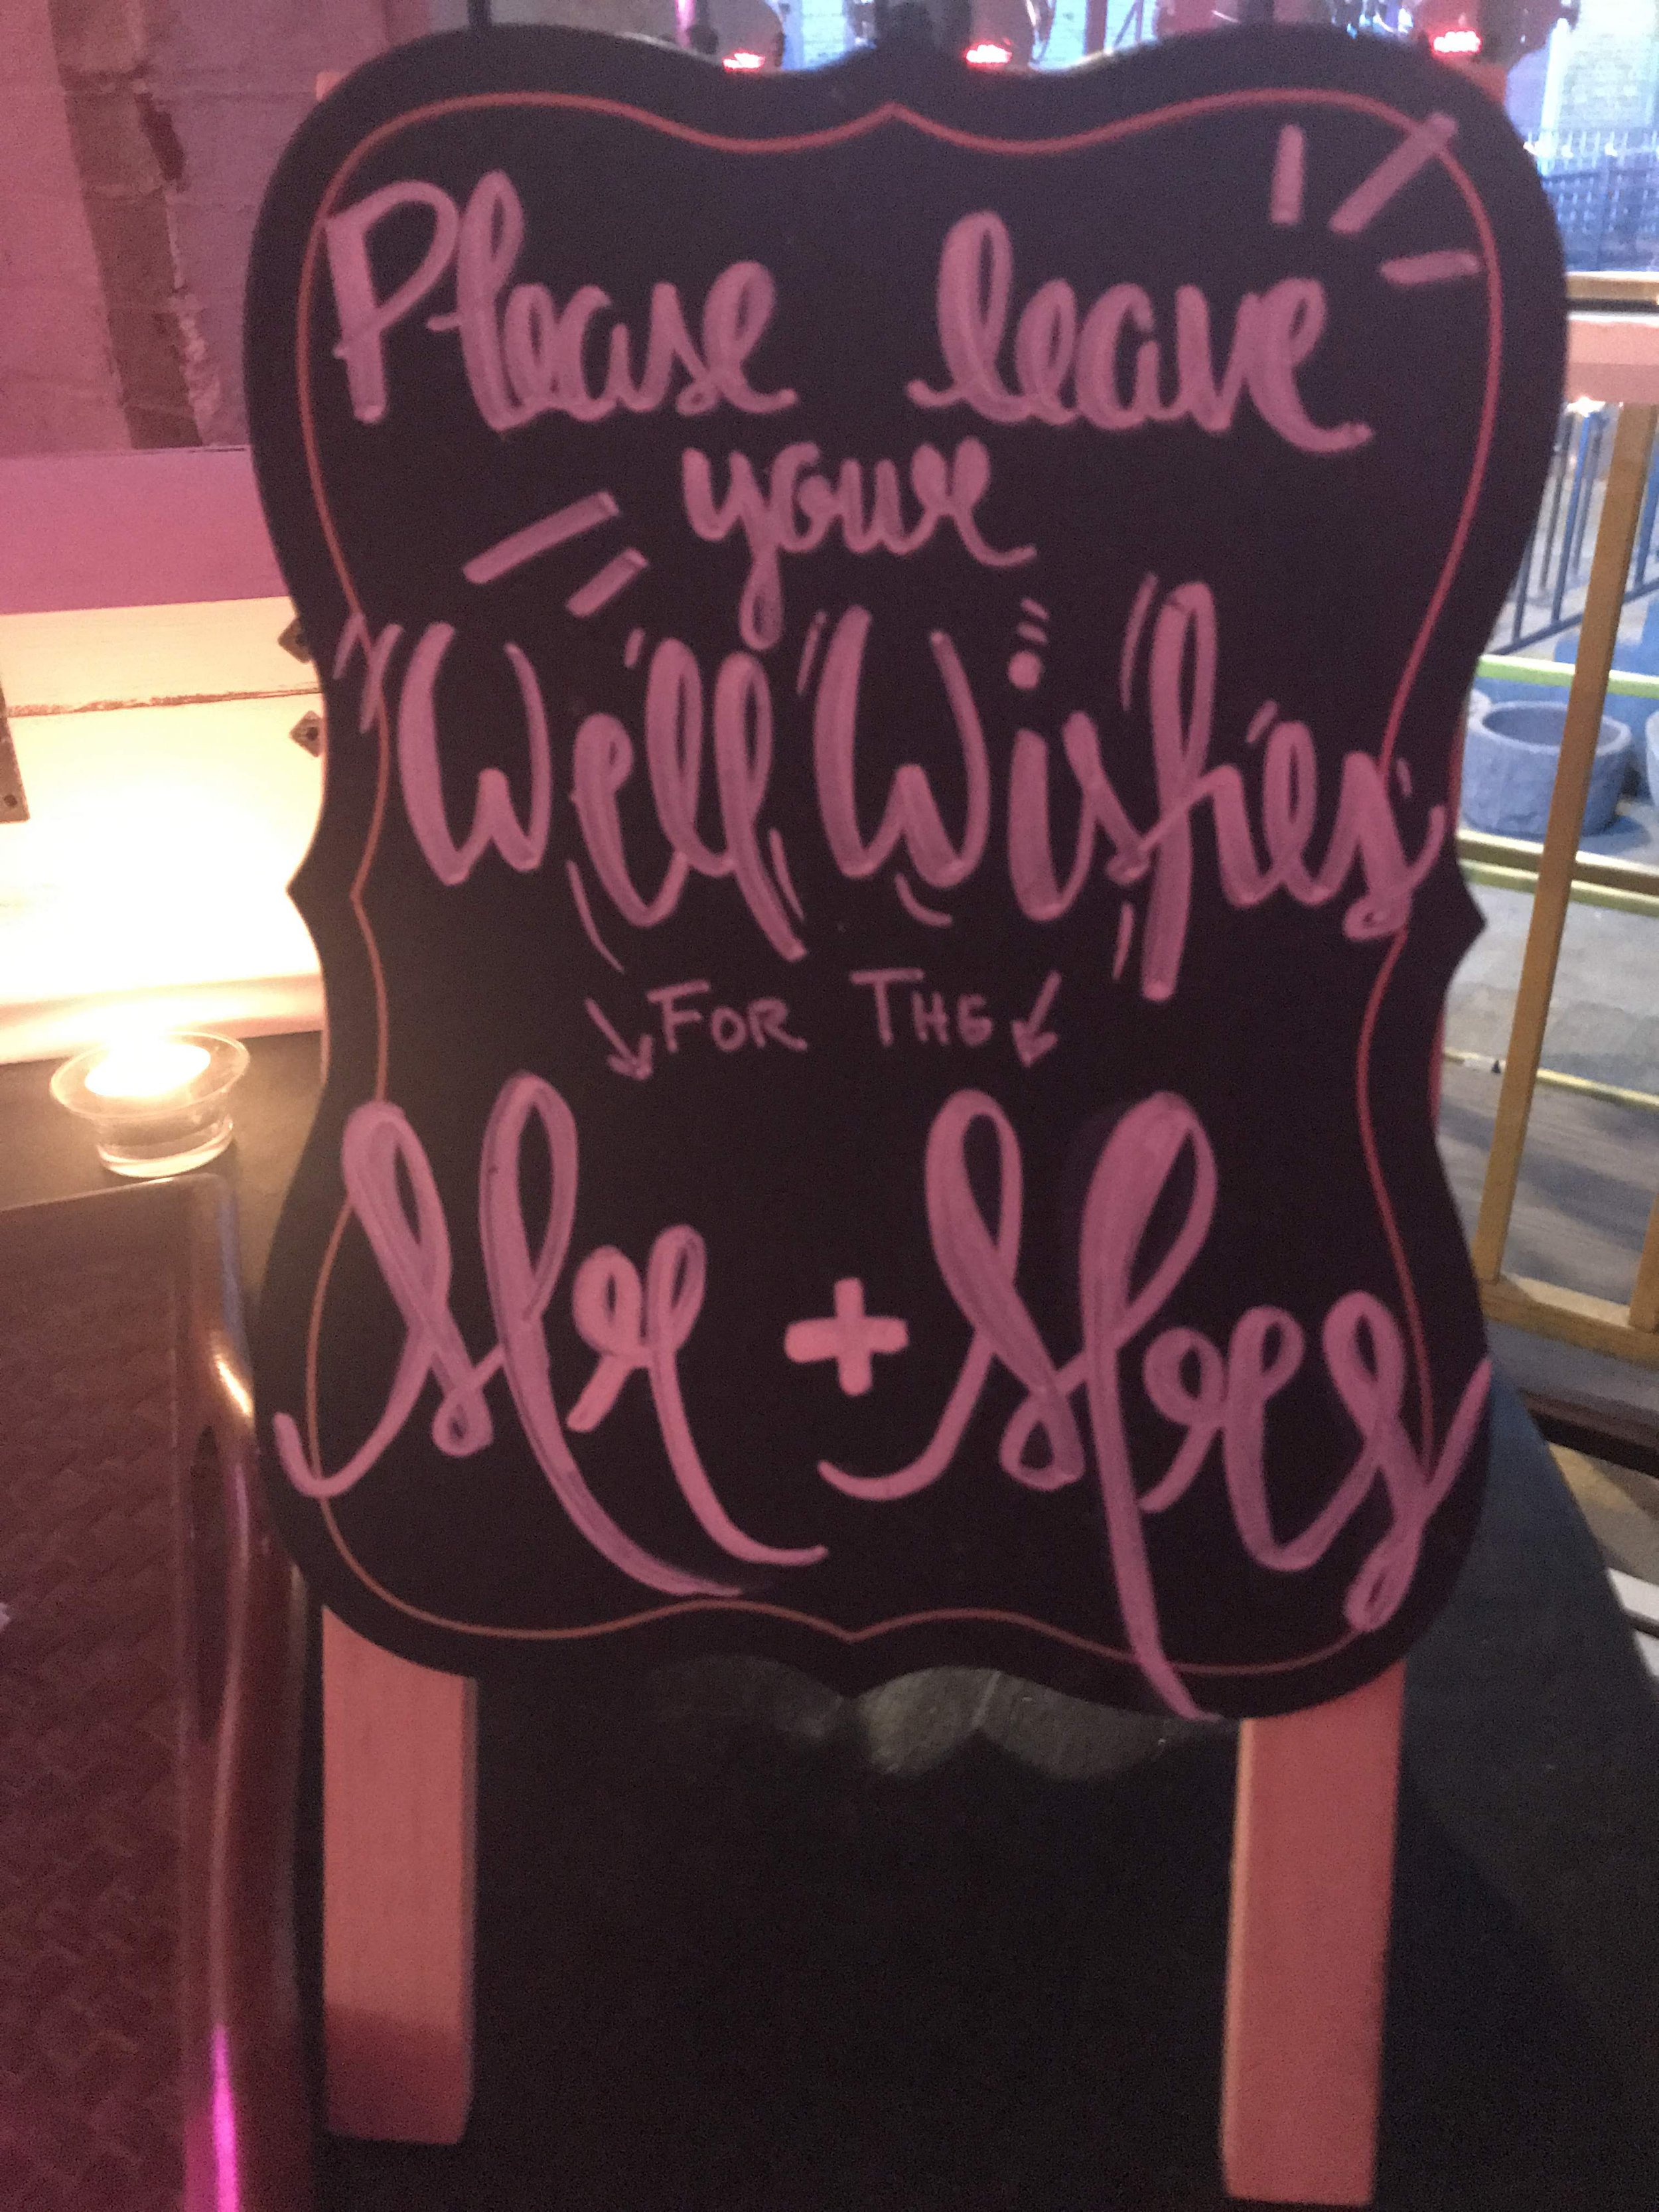 Please leave
your
Well Wishes
FOR THE
Mr + Mrs